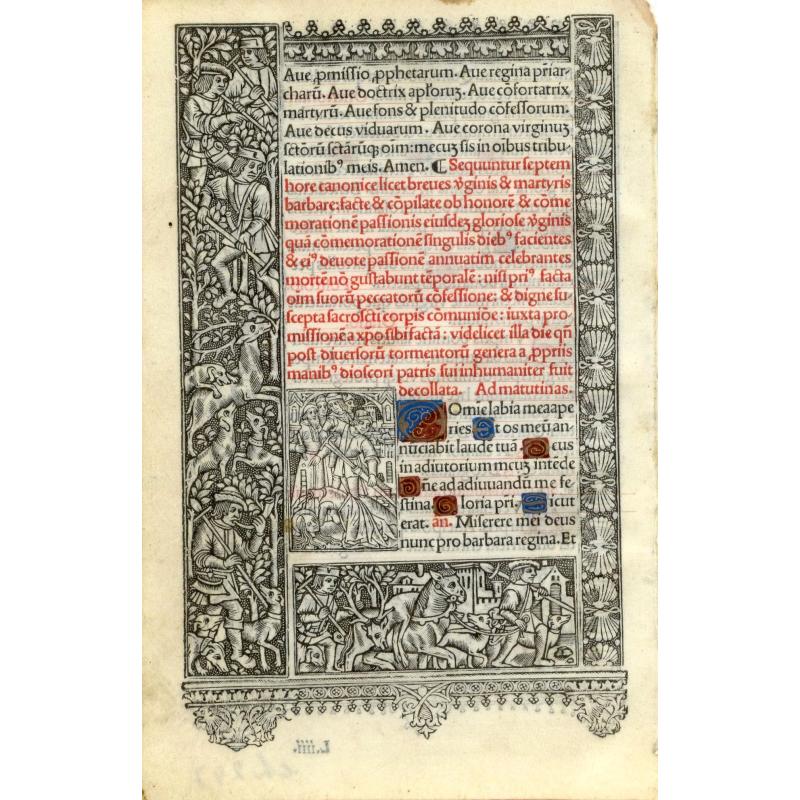 Aue ꝓmissio ꝓphetarum. Aue regina pr̃iar-
charū. Aue doctrix apl̃oruꝫ. Aue cõfortatrix
martyrū. Aue fons & plenitudo cõfessorum.
Aue decus viduarum. Aue corona virginuꝫ
sctõrū sctãrũqꝫ oim: mecuꝫ sis in oibus tribu-
lationibꝰ meis. Amen. ¶ Sequuntur septem
hore canonice licet breues v̾ginis & martyris
barbare: facte & cõpilate ob honorẽ & cõme
morationẽ passionis eiusdeꝫ gloriose v̾ginis
quã cõmemorationẽ singulis diebꝰ facientes
& eiꝰ deuote passionẽ annuatim celebrantes
mortẽ nõ gustabunt tẽporalẽ: nisi priꝰ facta
oim suorũ peccatorũ cõfessione: & digne su-
scepta sacroscti corpis cõmuniõe: iuxta pro-
missionẽ a xp̃o sibi factã: videlicet illa die qñ
post diuersorũ tormentorũ genera a ꝓpriis
manibꝰ dioscori patris sui inhumaniter fuit
decollata. Ad matutinas.
Omĩe labia mea ape
ries. Et os meũ an-
nũciabit laudẽ tuã. Deus
in adiutorium meuꝫ intẽde
Dñe ad adiuuandũ me fe-
stina. Gloria pr̃i. Sicut
erat. añ. Miserere mei deus
nunc pro barbara regina. Et
L.iiii.